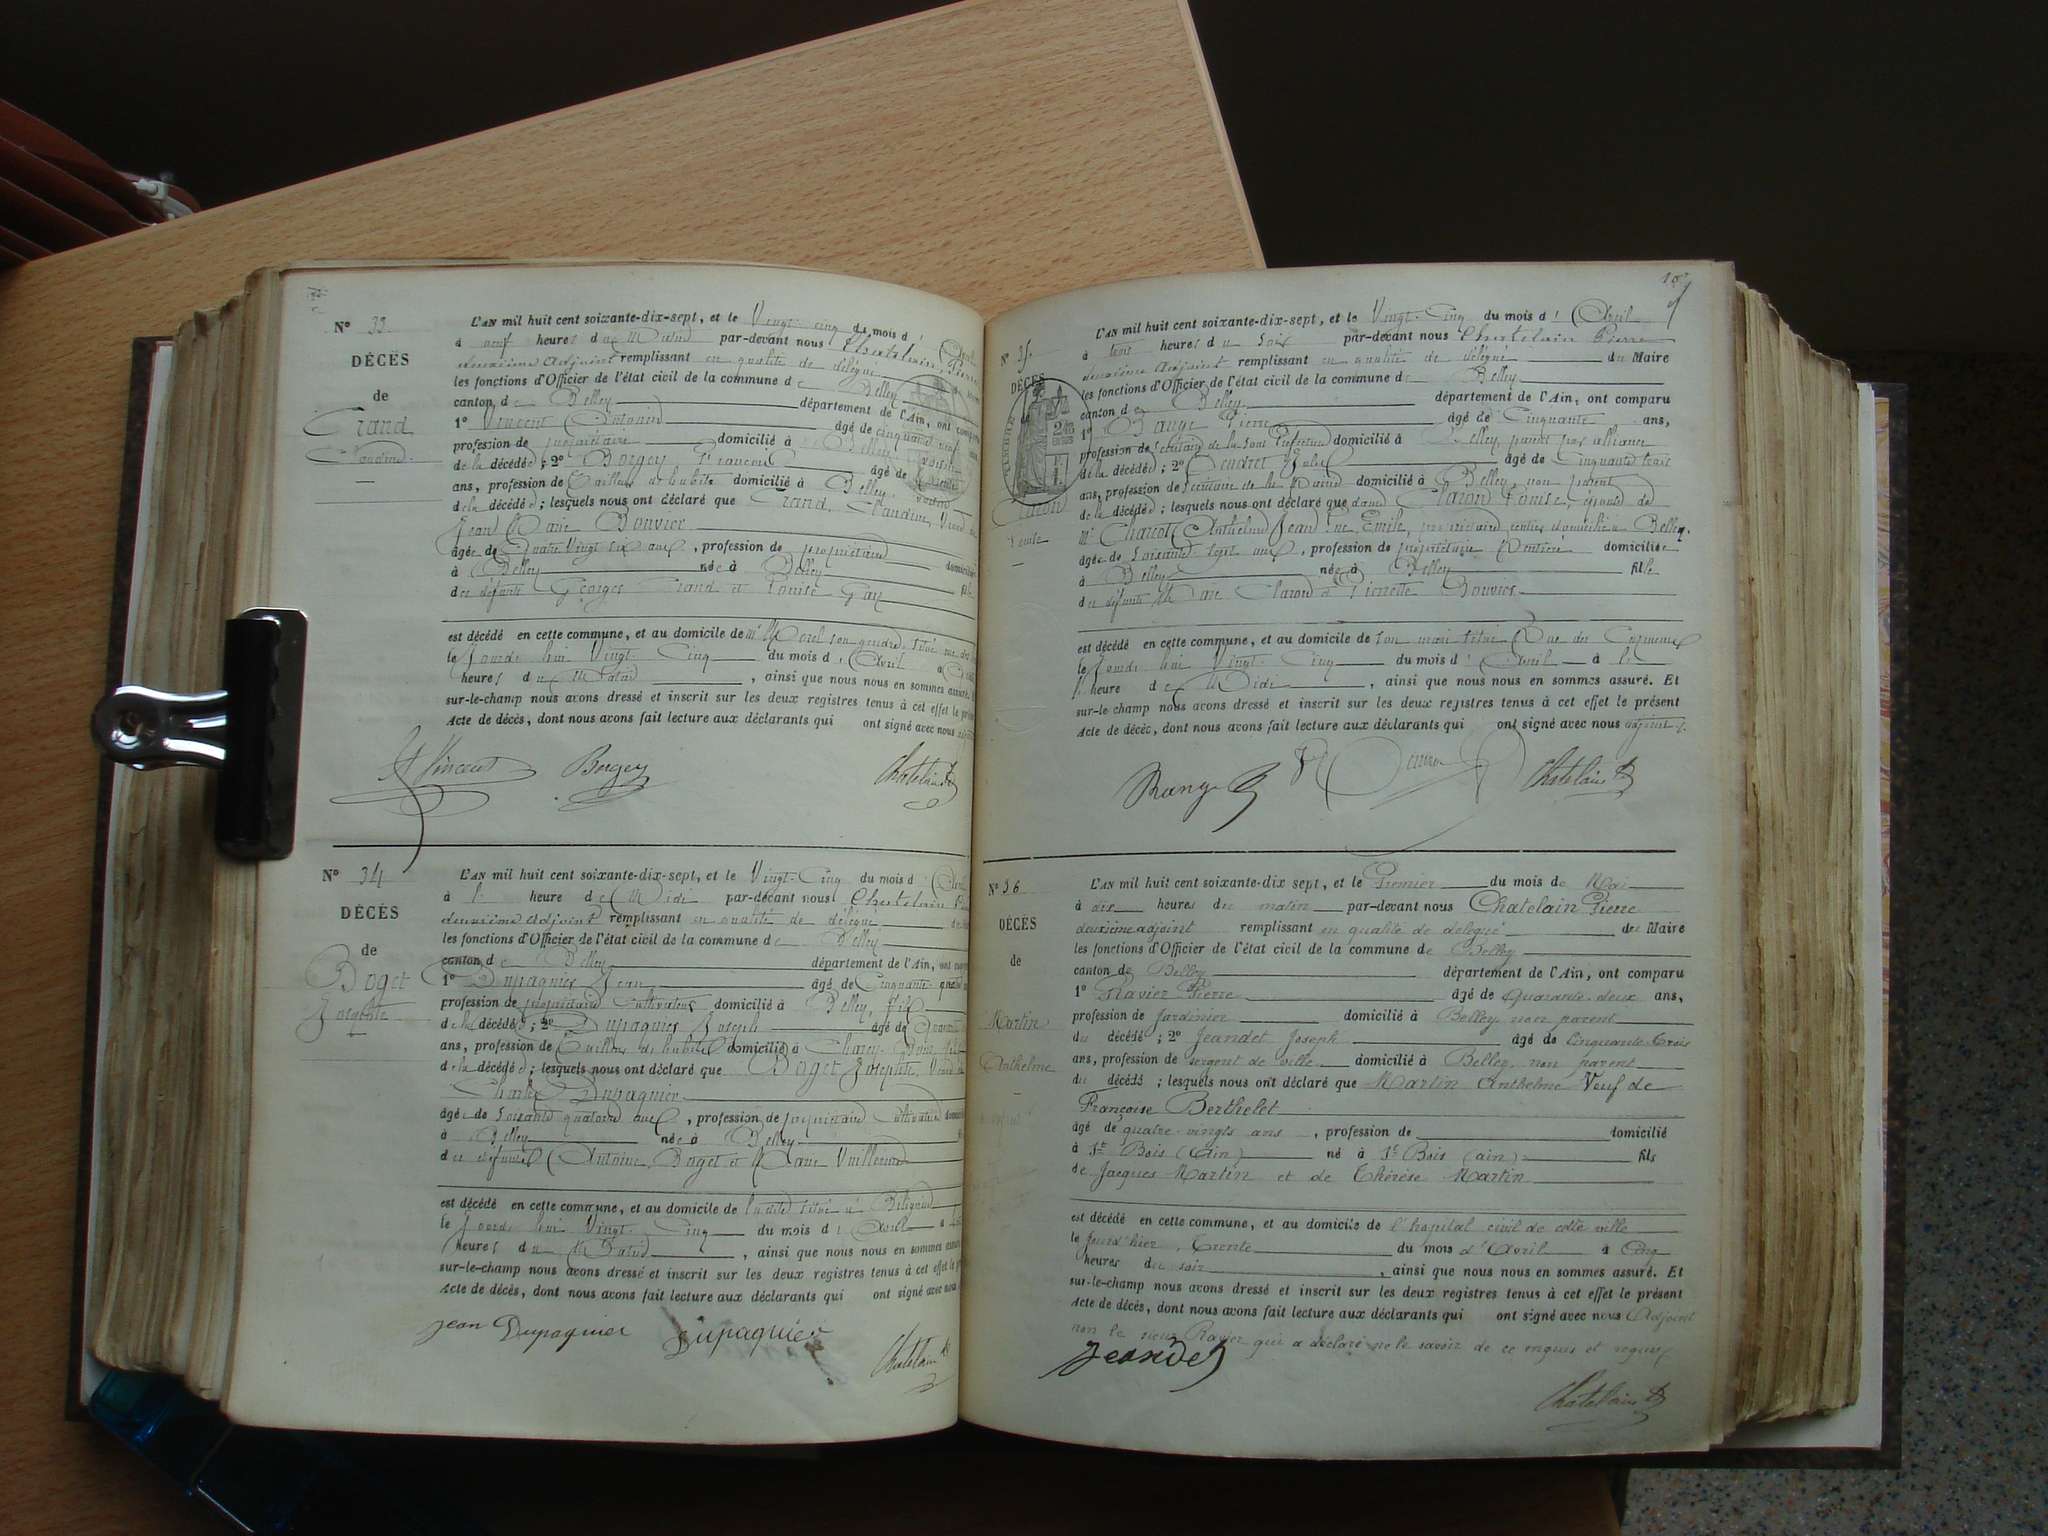 N° 33
DÉCÈS
de
Grand
Claudine
L'AN mil huit cent soixante-dix-sept, et le Vingt-cinq du mois d'
à neuf heures du Matin par-devant nous Chatelain Pierre
deuxième Adjoint remplissant en qualité de délégué
les fonctions d'Officier de l'état civil de la commune de Belley
canton de Belley département de l'Ain, ont
1° Vincent Antoine âgé de cinquante neuf
profession de propriétaire domicilié à Belley
de la décédée ; 2° Borgey François âgé de
ans, profession de Tailleur d'habits domicilié à Belley
de la décédée ; lesquels nous ont déclaré que Grand, Claudine,
Jean Marie Bouvier
âgée de Quatre Vingt six ans, profession de propriétaire
à Belley née à Belley
des défunts Georges Grand et Louise Gay
est décédé en cette commune, et au domicile de Mr Morel son gendre, situé rue
le Jourd'hui Vingt-Cinq du mois d'Avril à
heures du Matin, ainsi que nous nous en sommes assuré.
sur-le-champ nous avons dressé et inscrit sur les deux registres tenus à cet effet le
Acte de décès, dont nous avons fait lecture aux déclarants qui ont signé avec nous
A Vincent Borgey Chatelain
N° 34
DÉCÈS
de
Boget
Josephte
L'AN mil huit cent soixante-dix-sept, et le Vingt-Cinq du mois d'
à 1 heure de Midi par-devant nous Chatelain
deuxième Adjoint remplissant en qualité de délégué
les fonctions d'Officier de l'état civil de la commune de Belley
canton de Belley département de l'Ain, ont
1° Dupagnier Jean âgé de Cinquante
profession de propriétaire cultivateur domicilié à Belley, fils
de la décédée ; 2° Dupagnier Joseph âgé de
ans, profession de Tailleur d'habits domicilié à
de la décédée ; lesquels nous ont déclaré que Boget Josephte, Veuve
Charles Dupagnier
âgée de soixante quatorze ans, profession de propriétaire cultivateur
à Belley née à Belley
des défunts Antoine Boget et Marie
est décédé en cette commune, et au domicile de
le Jourd'hui Vingt-Cinq du mois d'Avril à
heures du Matin, ainsi que nous nous en sommes
sur-le-champ nous avons dressé et inscrit sur les deux registres tenus à cet effet le
Acte de décès, dont nous avons fait lecture aux déclarants qui ont signé avec nous
jean Dupagnier Dupagnier Chatelain
N° 35
DÉCÈS
Claron
Louise
L'AN mil huit cent soixante-dix-sept, et le Vingt-Cinq du mois d'Avril
à trois heures du Soir par-devant nous Chatelain Pierre
deuxième Adjoint remplissant en qualité de délégué du Maire
les fonctions d'Officier de l'état civil de la commune de Belley
canton de Belley département de l'Ain, ont comparu
1° Pierre âgé de Cinquante ans,
profession de de la Sous Préfecture domicilié à Belley, parent par alliance
de la décédée ; 2° Jules âgé de Cinquante trois
ans, profession de secrétaire de la Mairie domicilié à Belley, non parent
de la décédée ; lesquels nous ont déclaré que dame Claron Louise, épouse de
Mr Charcot Anthelme Jean Luc Emile, propriétaire rentier domicilié à Belley.
âgée de soixante sept ans, profession de propriétaire Rentière domiciliée
à Belley née à Belley fille
des défunts Marie Claron et Pierrette Bouvier
est décédé en cette commune, et au domicile de son mari situé Rue des
le Jourd'hui Vingt-Cinq du mois d'Avril à 1
heure de Midi, ainsi que nous nous en sommes assuré. Et
sur-le-champ nous avons dressé et inscrit sur les deux registres tenus à cet effet le présent
Acte de décès, dont nous avons fait lecture aux déclarants qui ont signé avec nous adjoint
Chatelain
N° 36
DÉCÈS
de
Martin
Anthelme
L'AN mil huit cent soixante-dix sept, et le Premier du mois de Mai
à dix heures du matin par-devant nous Chatelain Pierre
deuxième adjoint remplissant en qualité de délégué du Maire
les fonctions d'Officier de l'état civil de la commune de Belley
canton de Belley département de l'Ain, ont comparu
1° Ravier Pierre âgé de Quarante-deux ans,
profession de Jardinier domicilié à Belley, non parent
du décédé ; 2° Jeandet Joseph âgé de Cinquante-trois
ans, profession de sergent de ville domicilié à Belley, non parent
du décédé ; lesquels nous ont déclaré que Martin Anthelme Veuf de
Françoise Berthelet
âgé de quatre-vingts ans, profession de domicilié
à St Bois (Ain) né à St Bois (ain) fils
de Jacques Martin et de Thérèse Martin
est décédé en cette commune, et au domicile de l'hopital civil de cette ville
le Jourd'hier, Trente du mois d'Avril à Cinq
heures du soir, ainsi que nous nous en sommes assuré. Et
sur-le-champ nous avons dressé et inscrit sur les deux registres tenus à cet effet le présent
Acte de décès, dont nous avons fait lecture aux déclarants qui ont signé avec nous Adjoint
non le sieur Ravier qui a déclaré ne le savoir de ce enquis et requis
Jeandet
Chatelain